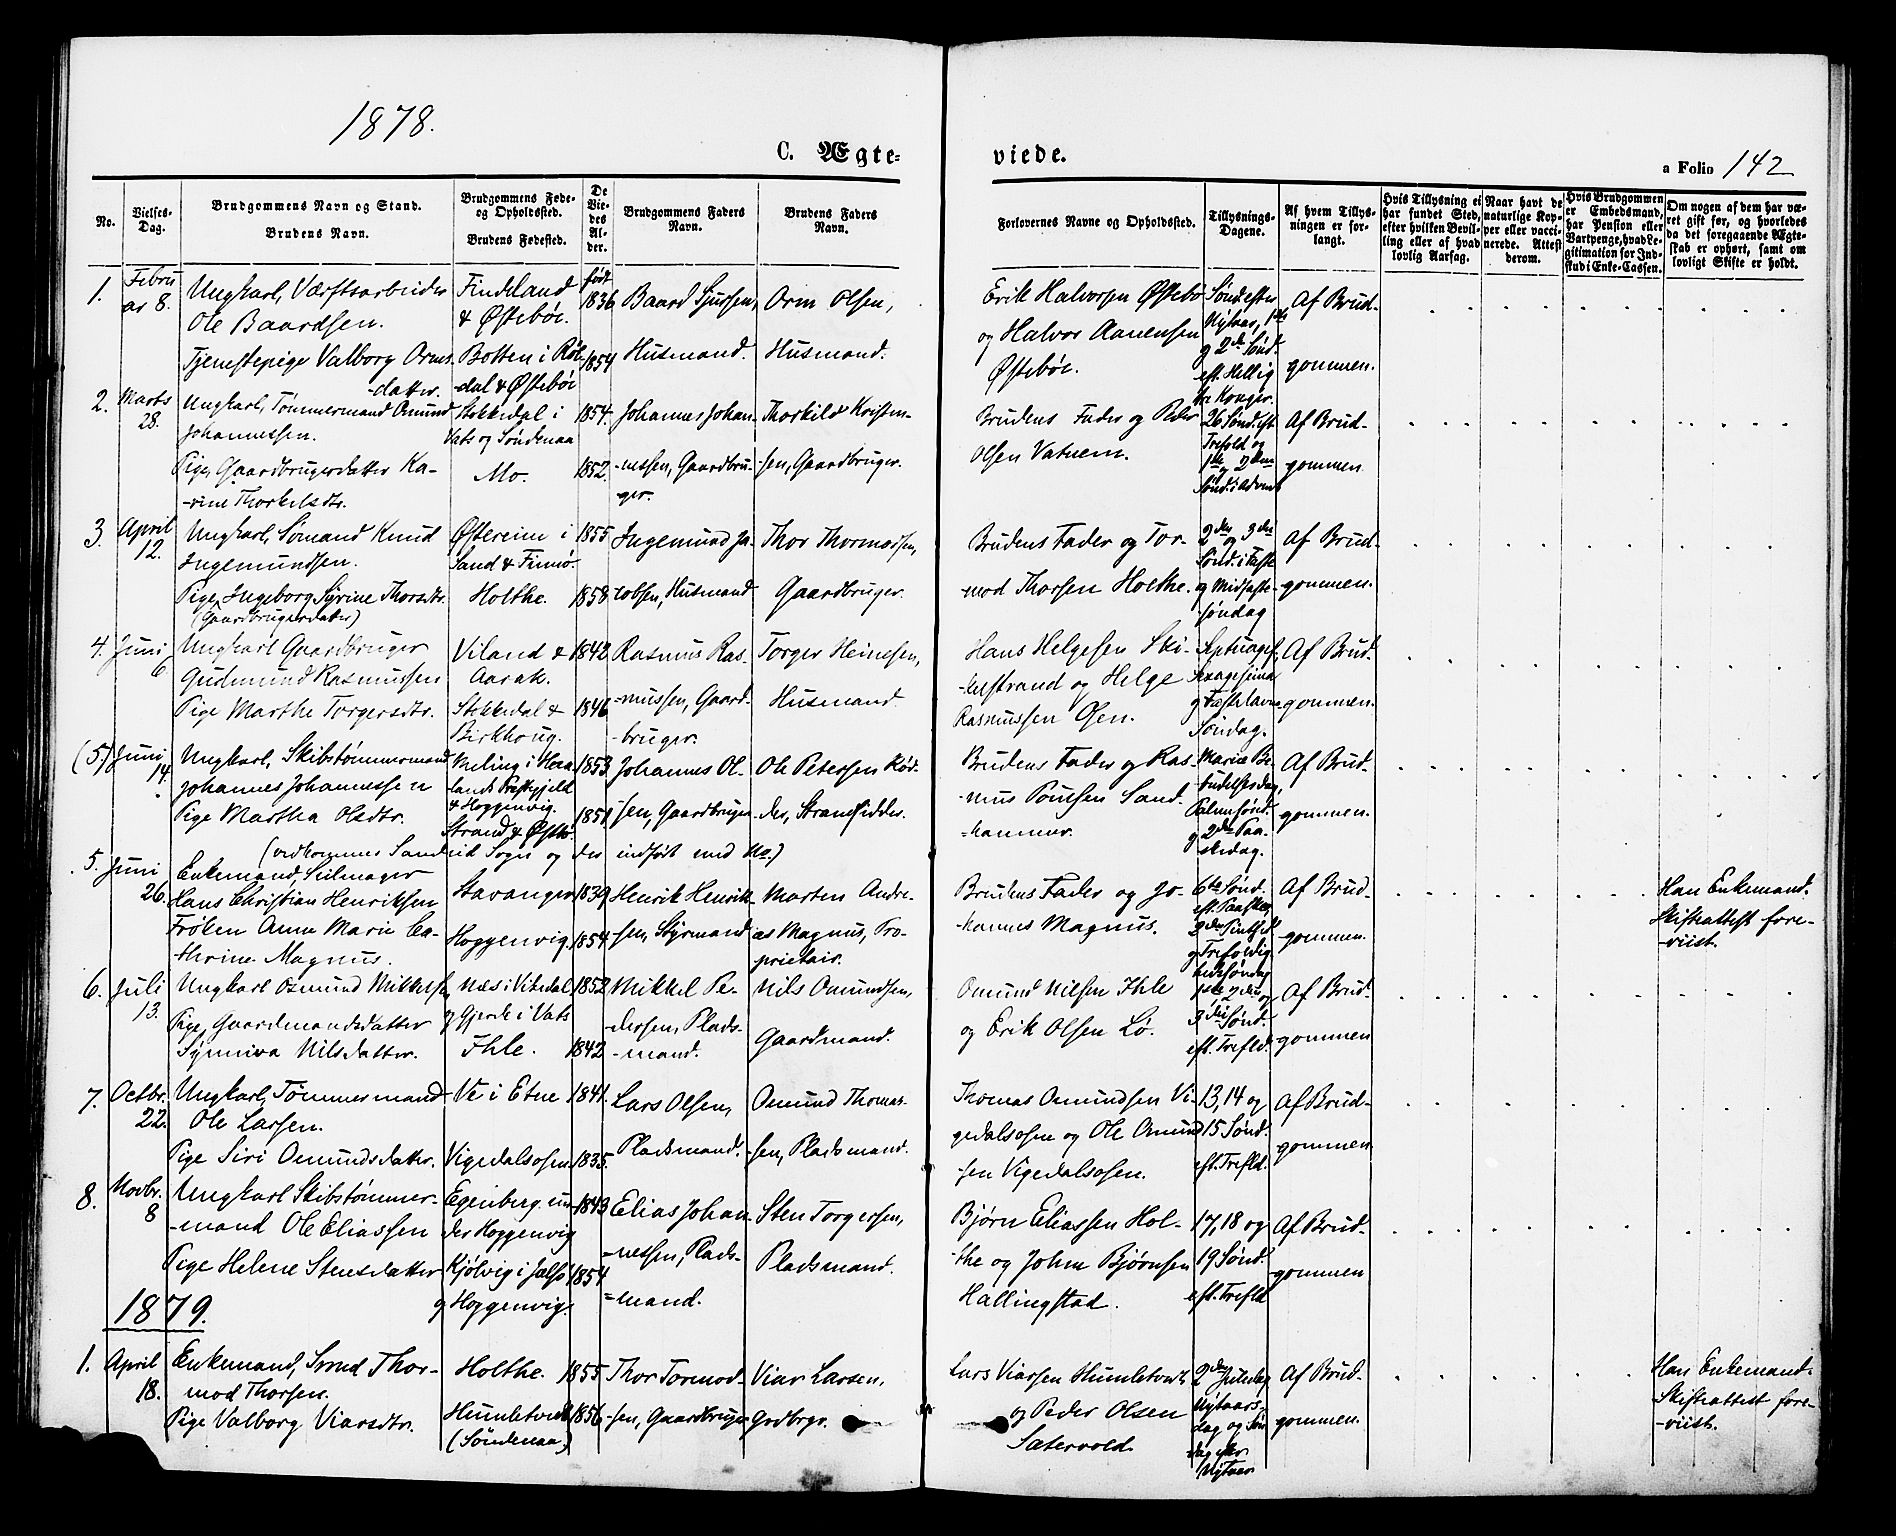 1878.
C. Ægte-
viede.
a Folio 142
No.
Vielses-
Dag.
Brudgommens Navn og Stand.
Brudens Navn.
Brudgommens Føde-
og Opholdsted.
Brudens Fødested.
De
Vie-
des
Al-
der.
Brudgommens Faders
Navn.
Brudens Faders
Navn.
Forlovernes Navne og Opholdsted.
Tillysnings-
Dagene.
Af hvem Tillys-
ningen er for-
langt.
Hvis Tillysning ei
har fundet Sted,
efter hvilken Bevil-
ling eller af hvad
lovlig Aarsag.
Naar havt de
naturlige Kop-
per eller vacci-
nerede. Attest
derom.
Hvis Brudgommen
er Embedsmand,
har Pension eller
Vartpenge, hvad Le-
gitimation for Ind-
skud i Enke-Cassen.
Om nogen af dem har væ-
ret gift før, og hvorledes
da det foregaaende Ægte-
skab er ophørt, samt om
lovligt Skifte er holdt.
1.
Febru
ar 8.
Ungkarl, Værftsarbeider
Ole Baardsen.
Tjenestepige Valborg Orms-
-datter.
Findeland
& Østebøe.
Botten i Røl-
-dal & Østebøe
født
1836
1854
Baard Sjursen,
Husmand.
Orm Olsen,
Husmand.
Erik Halvorsen Østebø
og Halvor Aanensen
Østebøe.
Sønd. efter
Nytaar, 1ste
og 2den Sønd.
eft. Hellig
tre Konger.
Af Brud-
gommen.
2.
Marts
28.
Ungkarl, Tømmermand Omund
Johannessen.
Pige, Gaardbrugerdatter Ka-
-rine Thorkelsdtr.
Stokkedal i
Vats og Søndenaa
Mo.
1854.
1852.
Johannes Johan-
-nessen, Gaardbru-
-ger.
Thorkild Kristen-
-sen, Gaardbruger.
Brudens Fader og Peder
Olsen Vatnem.
26 Sønd. eft.
Trefold og
1ste og 2den
Sønd. i Advent
Af Brud-
gommen
3.
April
12.
Ungkarl, Sømand Knud
Ingemundsen.
Pige, Ingeborg Syrine Thorsdtr.
(Gaardbrugerdatter)
Østereim i
Sand & Finnø.
Holthe.
1855
1858
Ingemund Ja-
-cobsen, Husmand
Thor Thormodsen,
Gaardbruger.
Brudens Fader og Tor-
-mod Thorsen Holthe.
2den og 3die
Sønd. i Faste
og Midfaste-
-søndag
Af Brud-
gommen.
4.
Juni
6
Ungkarl Gaardbruger
Gudmund Rasmussen
Pige Marthe Torgersdtr.
Viland &
Aarak.
Stokkedal &
Birkhaug.
1842
1846
Rasmus Ras-
-mussen, Gaard-
-bruger.
Torger Heinesen,
Husmand.
Hans Helgesen Ski-
-kerstrand og Helge
Rasmussen Øen.
Septuages.
Sexagesima
og Fastelavns
Søndag.
Af Brud-
gommen.
(5.)
Juni
14.
Ungkarl, Skibstømmermand
Johannes Johannessen
Pige Martha Olsdtr.
Meling i Hera-
-lands Præstegjeld
& Hoggenvig.
Strand & Østbø
1853.
1851.
Johannes Ol-
-sen, Gaardbruger
Ole Petersen Rød-
-der, Strandsidder.
Brudens Fader og Ras-
-mus Poulsen Sand-
-hammer.
Mariæ Be-
budelsesdag,
Palmesønd.
og 2den Paa-
-skedag.
Af Brud-
gommen.
(vedkommer Sandeid Sogn og der indført med No.)
5.
Juni
26.
Enkemand, Seilmager
Hans Christian Henriksen
Frøken Anne Marie Ca-
-thrine Magnus.
Stavanger
Hoggenvig.
1839
1854
Henrik Henrik-
-sen, Styrmand
Morten Andre-
as Magnus, Pro-
prietair.
Brudens Fader og Jo-
-hannes Magnus.
6te Sønd.
eft. Paaske,
2den Pintsed.
og Trefoldig-
hedssøndag
Af Brud-
gommen.
Han Enkemand.
Skifteattest fore-
-viist.
6.
Juli
13.
Ungkarl Osmund Mikkelsen
Pige, Gaardmandsdatter
Synniva Nilsdatter.
Næs i Vikedal
og Gjerde i Vats
Ihle.
1852
1842
Mikkel Pe-
-dersen, Plads-
-mand.
Nils Omundsen,
Gaardmand.
Omund Nilsen Ihle
og Erik Olsen Lø.
1ste, 2den og
3die Sønd.
eft. Trefld.
Af Brud-
gommen
7.
Octbr.
22.
Ungkarl, Tømmermand
Ole Larsen.
Pige Siri Omundsdatter.
Ve i Etne
Vigedalsosen
1841.
1835.
Lars Olsen,
Pladsmand.
Omund Thomas-
-sen, Pladsmand.
Thomas Omundsen Vi-
gedalsosen og Ole Omund-
-sen Vigedalsosen.
13, 14 og
15 Sønd.
eft. Trefld.
Af Brud-
gommen
8.
Novbr.
8
Ungkarl Skibstømmer-
-mand Ole Eliassen
Pige Helene Stensdatter
Egenberg un-
der Hoggenvig
Kjølvig i Jelsø
og Hoggenvig.
1843
1854
Elias Johan-
-nessen, Plads-
-mand.
Sten Torgersen,
Pladsmand.
Bjørn Eliassen Hol-
-the og John Bjørnsen
Hallingstad.
17, 18 og
19 Sønd.
eft. Trefld
Af Brud-
-gommen
1879.
1.
April
18.
Enkemand, Smed Thor-
mod Thorsen.
Pige Valborg Viarsdtr.
Holthe.
Humletvedt
(Søndenaa)
1855
1856
Thor Tormod-
-sen, Gaardbruger
Viar Larsen,
Grdbrgr.
Lars Viarsen Humletvedt
og Peder Olsen
Sætervold.
2den Juledag
Nytaars-
dag og Søn-
-dag efter
Nytaar
Af Brud-
gommen.
Han Enkemand-
Skifteattest fore-
-viist.